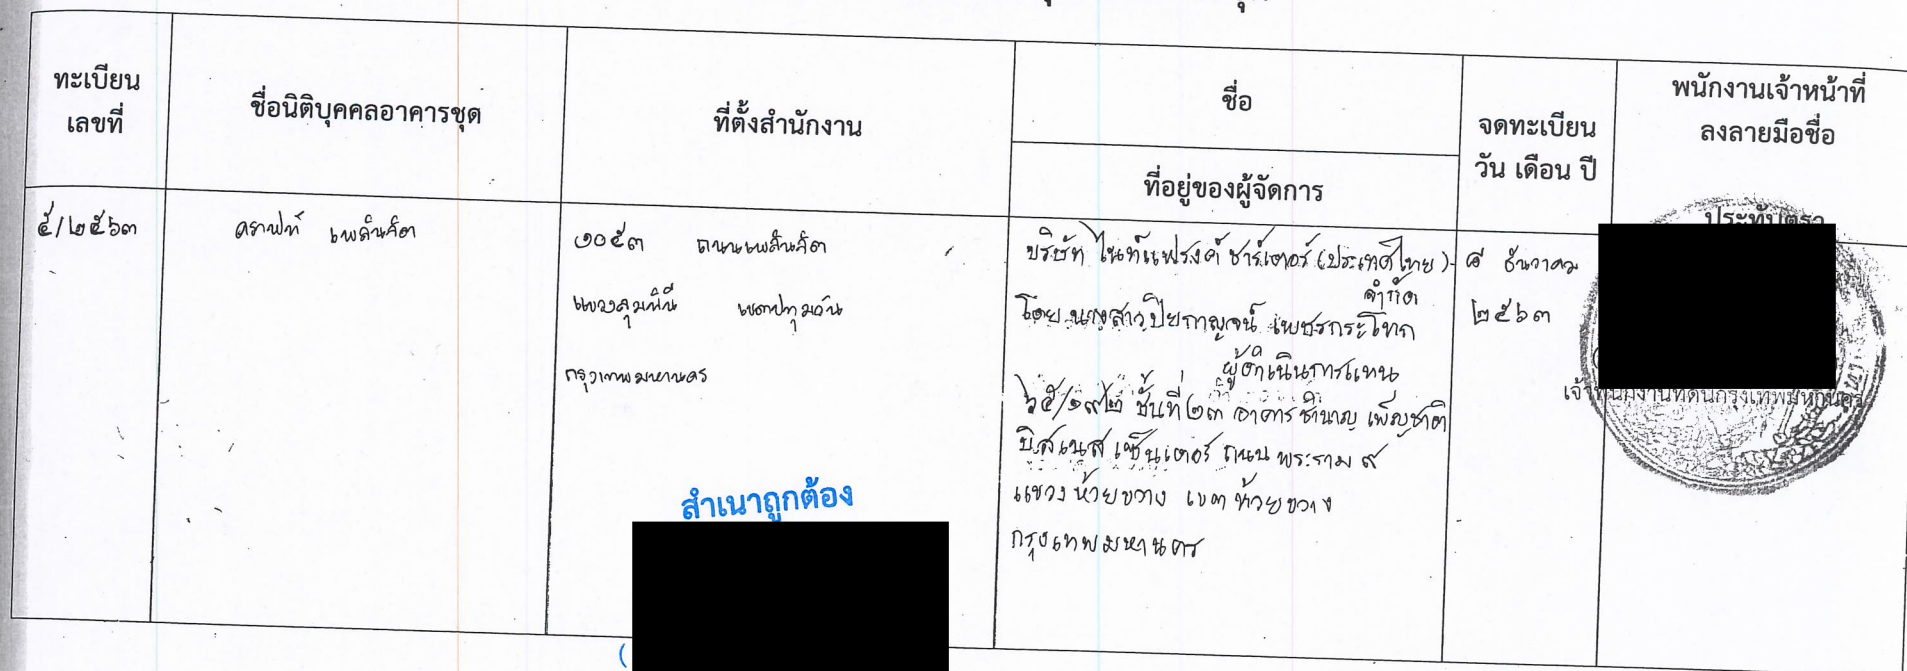 ทะเบียน
เลขที่
ชื่อนิติบุคคลอาคารชุด
ที่ตั้งสำนักงาน
ชื่อ
ที่อยู่ของผู้จัดการ
จดทะเบียน
วัน เดือน ปี
พนักงานเจ้าหน้าที่
ลงลายมือชื่อ
๕/๒๕๖๓
คราฟท์ เพลินจิต
๑๐๕๓ ถนนเพลินจิต
แขวงลุมพินี เขตปทุมวัน
กรุงเทพมหานคร
บริษัท ไนท์แฟรงค์ ชาร์เตอร์ (ประเทศไทย)
จำกัด
โดย นางสาวปิยกาญจน์ เพชรกระโทก
ผู้ดำเนินการแทน
๖๕/๑๙๒ ชั้นที่ ๒๓ อาคารชำนาญ เพ็ญชาติ
บิสเนส เซ็นเตอร์ ถนน พระราม ๙
แขวง ห้วยขวาง เขต ห้วยขวาง
กรุงเทพมหานคร
ธันวาคม
๒๕๖๓
ประทับตรา
เจ้าพนักงานที่ดินกรุงเทพมหานคร
สำเนาถูกต้อง
(